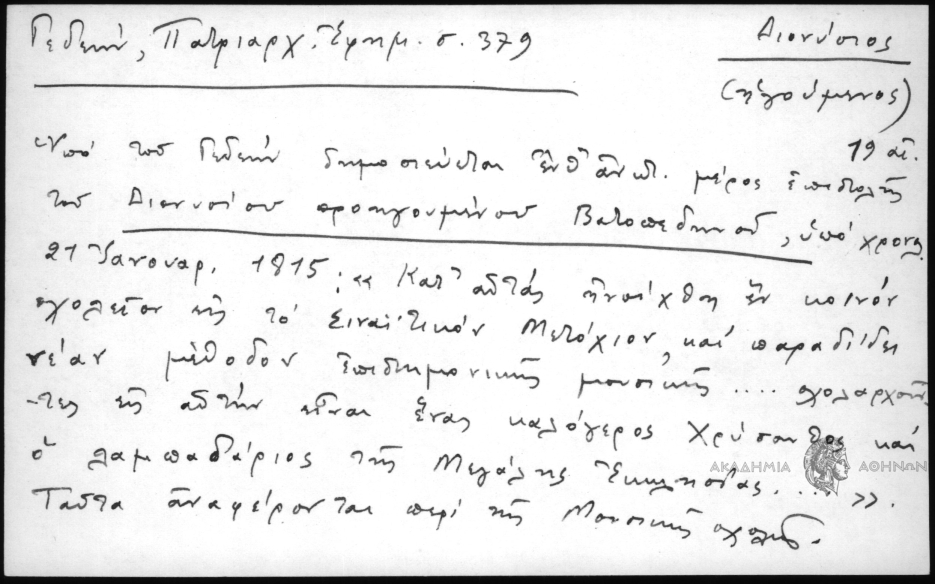 Γεδεών, Πατριαρχ. Ἐφημ. σ. 379
Διονύσιος
(ἡγούμενος)
19 αἰ.
Ὑπό τοῦ Γεδεών δημοσιεύεται ἔνθ' ἀνωτ. μέρος ἐπιστολῆς
τοῦ Διονυσίου προηγουμένου Βατοπεδηνοῦ, ὑπό χρονολ.
21 Ἰανουαρ. 1815: «Κατ' αὐτάς ἠνοίχθη ἕν κοινόν
σχολεῖον εἰς τό Σιναϊτικόν Μετόχιον, καί παραδίδει
νέαν μέθοδον ἐπιστημονικῆς μουσικῆς .... σχολαρχοῦν
-τες εἰς αὐτήν εἶναι ἕνας καλόγερος Χρύσανθος καί
ὁ λαμπαδάριος τῆς Μεγάλης Ἐκκλησίας .... ».
Ταῦτα ἀναφέρονται περί τῆς Μουσικῆς σχολῆς.
ΑΚΑΔΗΜΙΑ ΑΘΗΝΩΝ